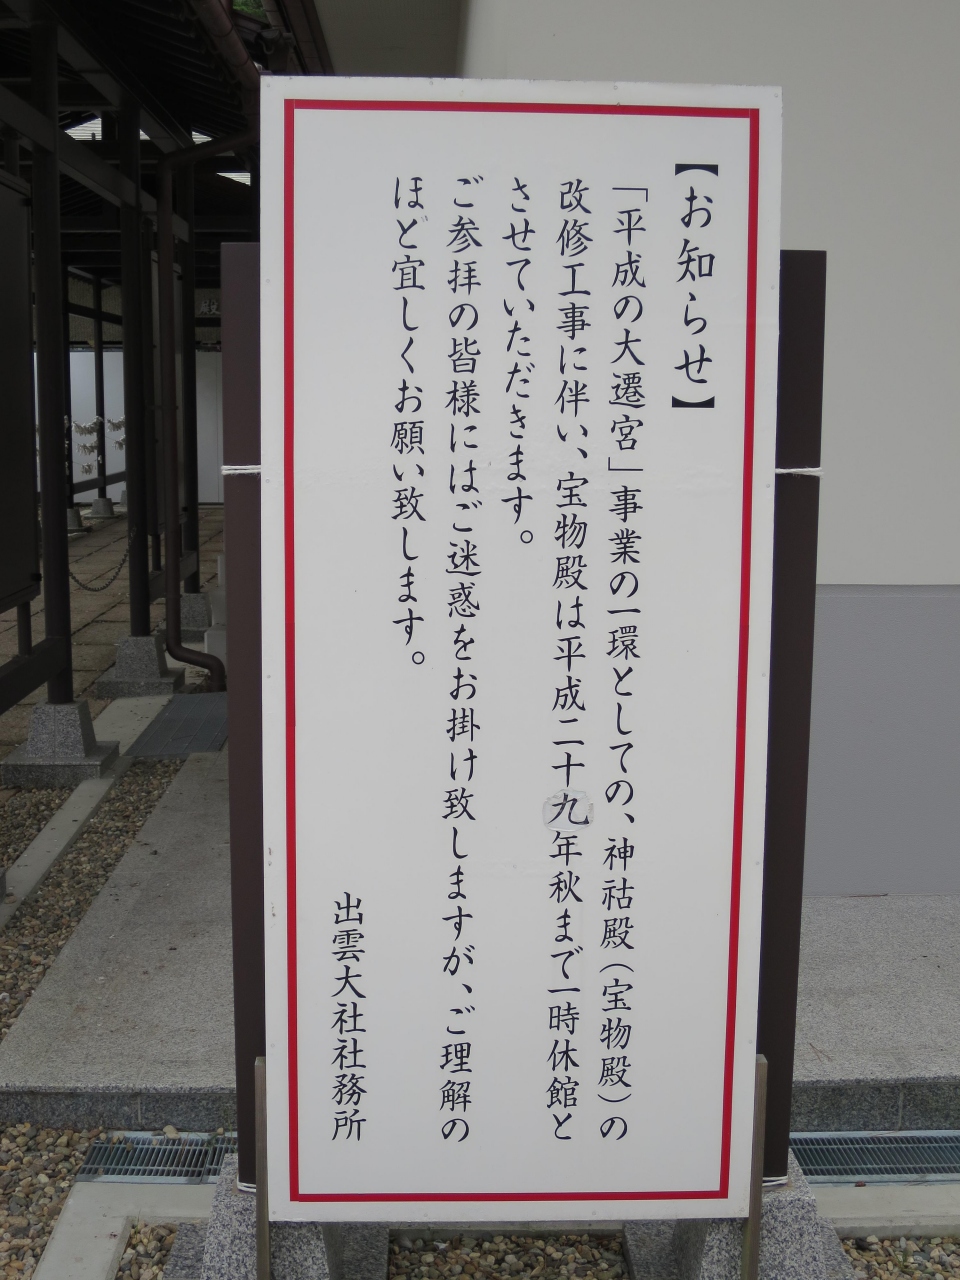 【お知らせ】
「平成の大遷宮」事業の一環としての、神祜殿（宝物殿）の
改修工事に伴い、宝物殿は平成二十九年秋まで一時休館と
させていただきます。
ご参拝の皆様にはご迷惑をお掛け致しますが、ご理解の
ほど宜しくお願い致します。
出雲大社社務所